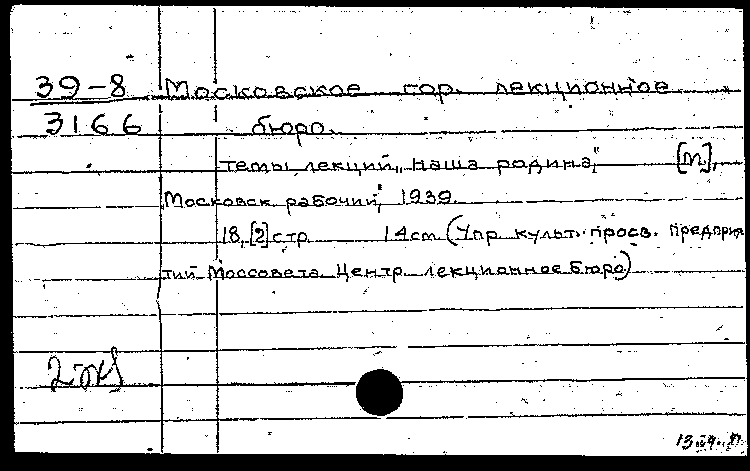 39-8 Московское гор. лекционное
3166 бюро.
темы лекций „Наша родина" [М],
„Московск. рабочий", 1939.
18, [2] стр 14 см (Упр культ. просв. предприя
тий Моссовета. Центр лекционное бюро)